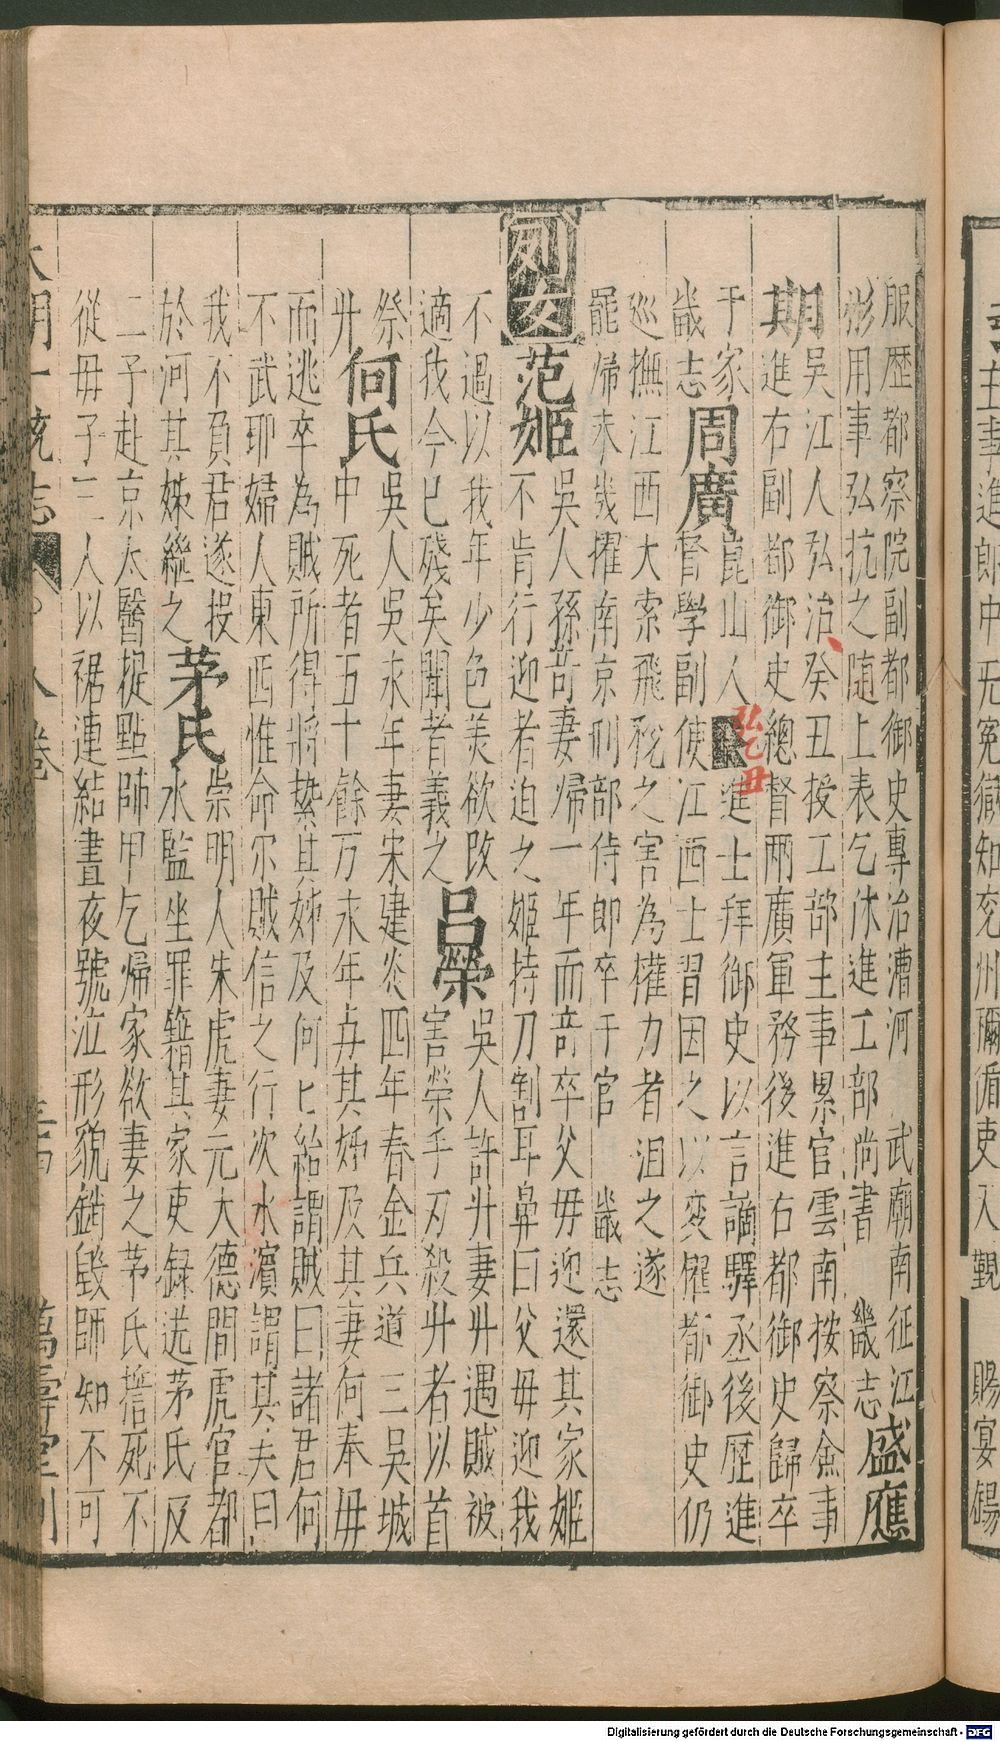 主事進郎中无冤獄知兗州禰循吏入覲 賜宴錫
服歷都察院副都御史專治漕河 武廟南征江
彬用事弘抗之随上表乞休進工部尚書 畿志
盛應
期
吳江人弘治癸丑授工部主事累官雲南按察僉事
進右副都御史總督兩廣軍務後進右都御史歸卒
于家
畿志
周廣
崑山人
弘乙丑
進士拜御史以言謫驛丞後歷進
督學副使江西士習因之以变擢都御史仍
巡撫江西大索飛稅之害為權力者沮之遂
罷歸未幾擢南京刑部侍郎卒于官 畿志
列女
范姬
吳人孫苛妻歸一年而苛卒父母迎還其家姬
不肯行迎者迫之姬持刀割耳鼻曰父母迎我
不過以我年少色美欲改
適我今已殘矣聞者義之
吕榮
吳人許升妻升遇賊被
害榮手刃殺升者以首
祭
升
何氏
吳人吳永年妻宋建炎四年春金兵道三吳城
中死者五十餘万永年与其姊及其妻何奉母
而逃卒為賊所得將縶其姊及何何紿謂賊曰諸君何
不武耶婦人東西惟命尔賊信之行次水濱謂其夫曰
我不負君遂投
於河其姊繼之
茅氏
崇明人朱虎妻元大德間虎官都
水監坐罪籍其家吏録送茅氏及
二子赴京太醫提點師甲乞歸家欲妻之茅氏誓死不
從母子三人以裾連結晝夜號泣形貌銷毀師知不可
大明一統志 八卷 萬壽堂刊
Digitalisierung gefördert durch die Deutsche Forschungsgemeinschaft - DFG